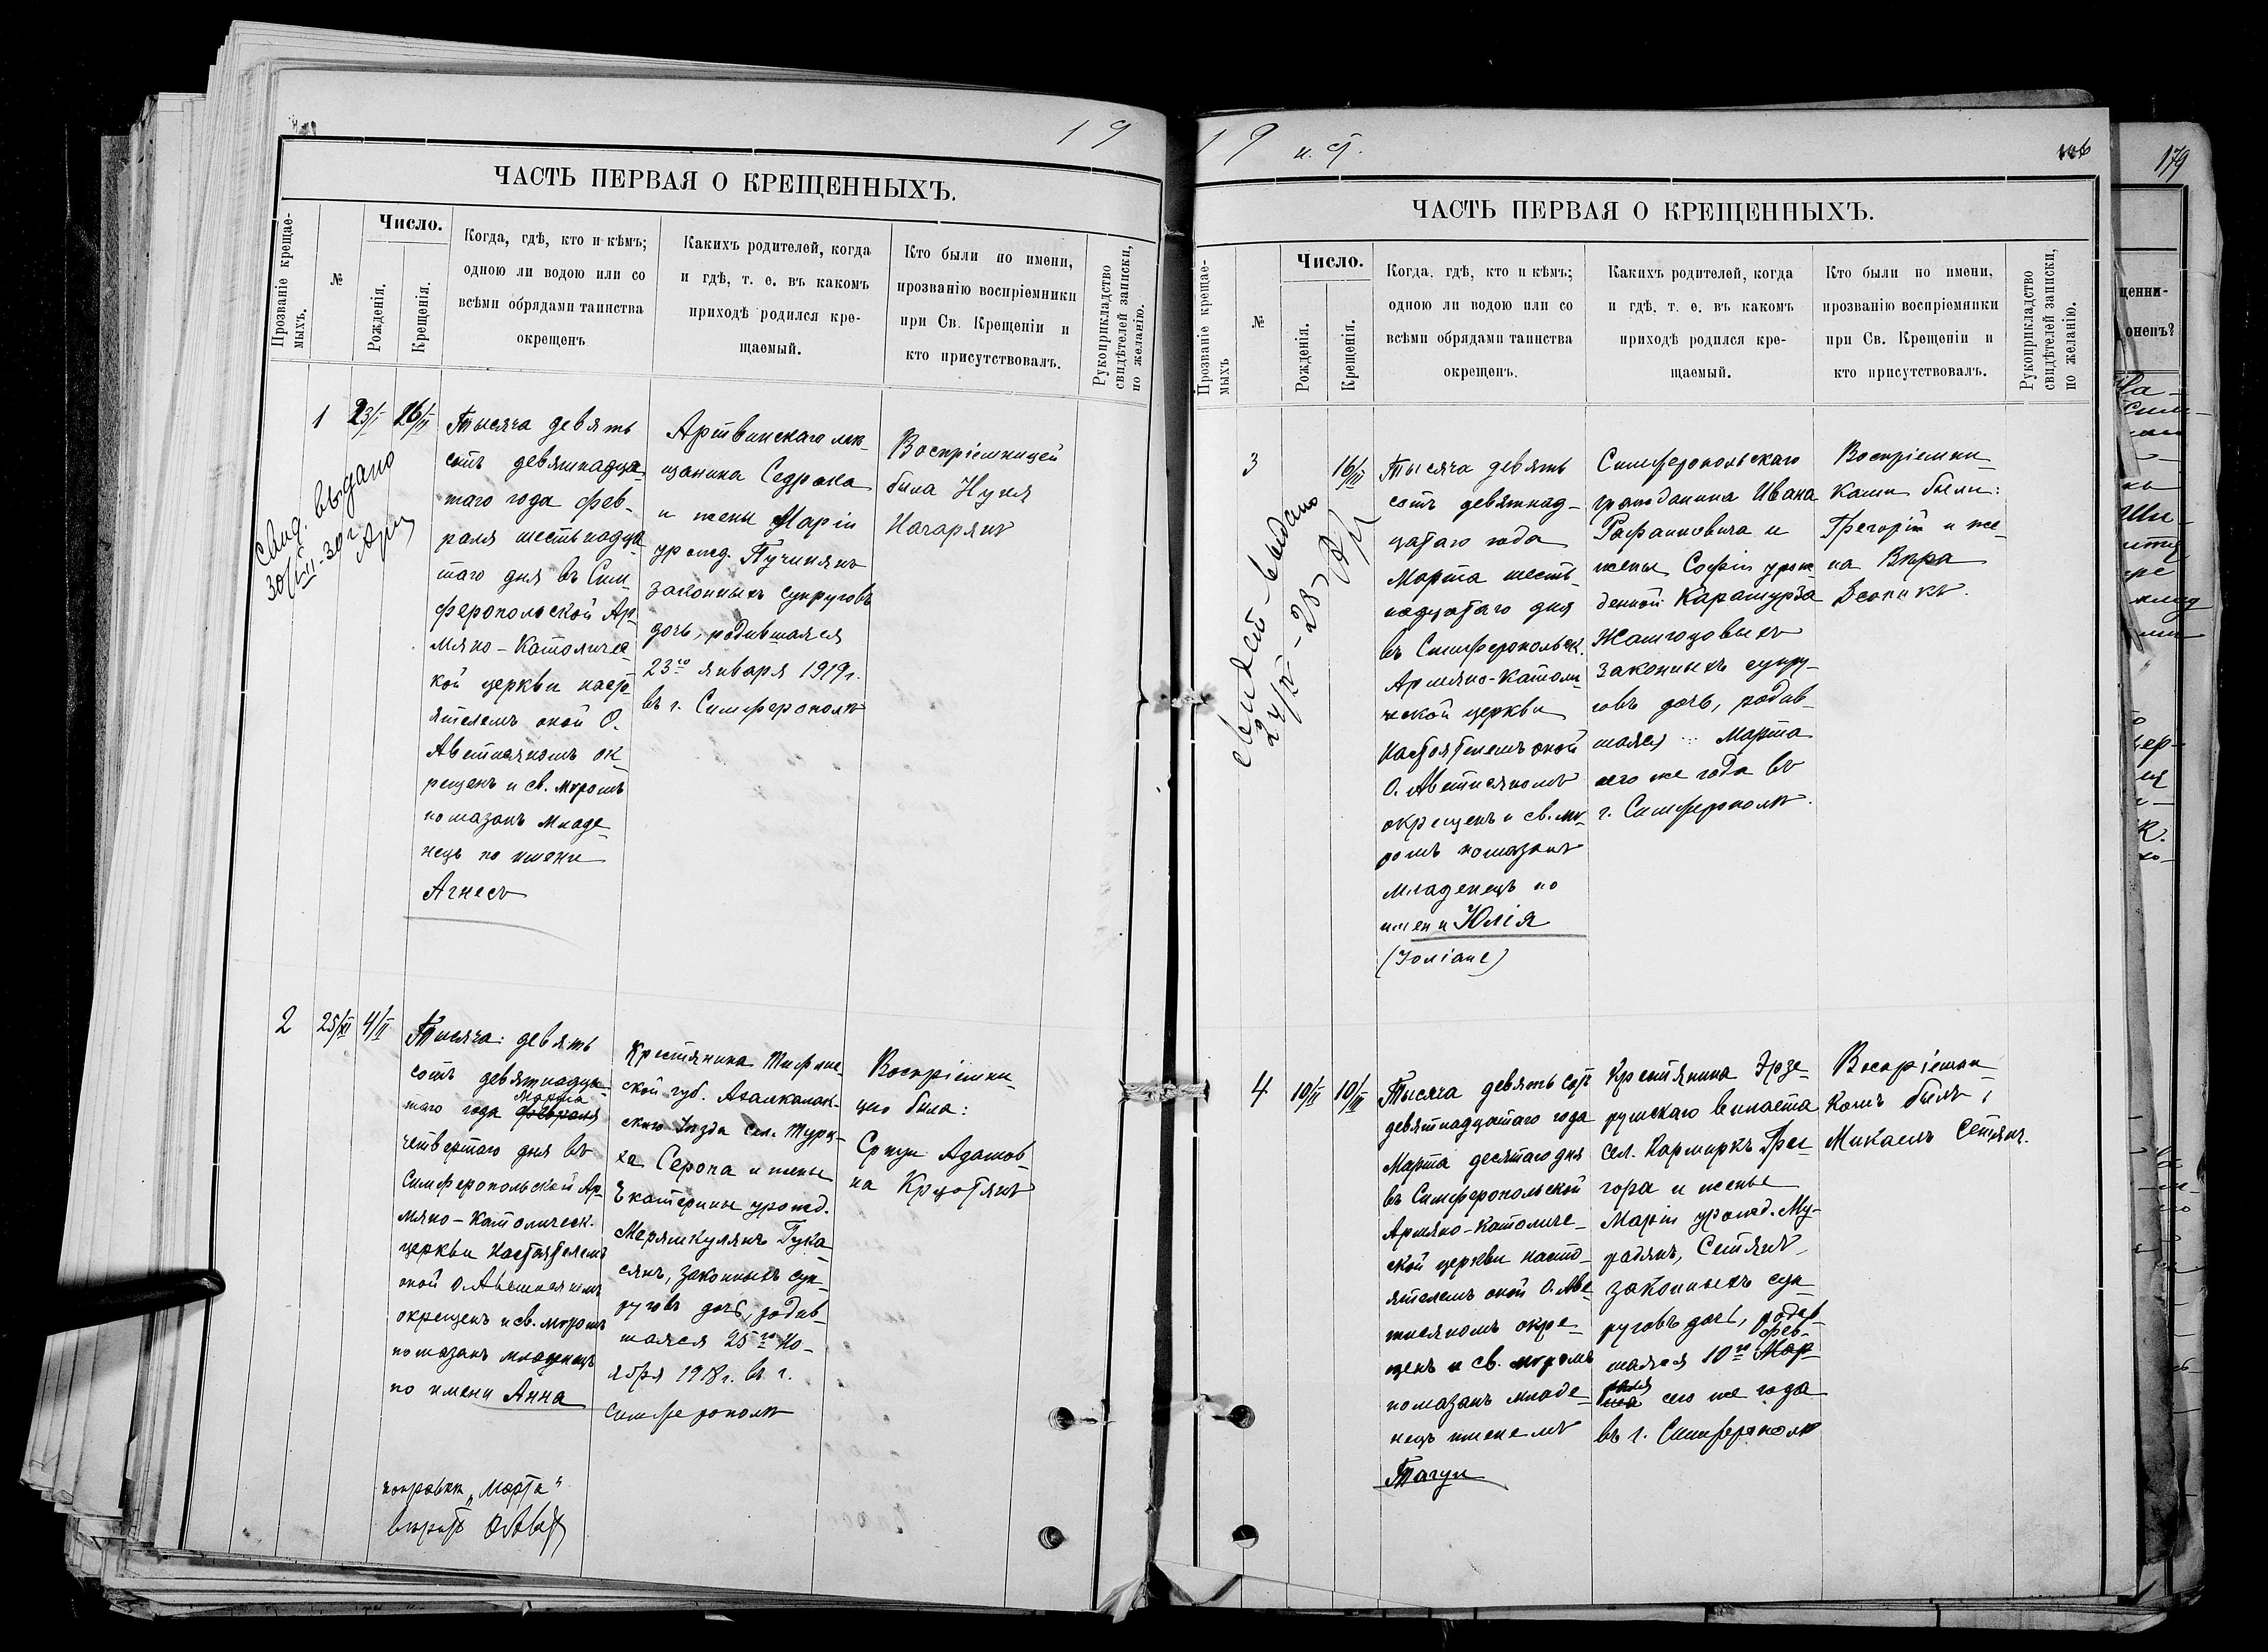 19
ЧАСТЬ ПЕРВАЯ О КРЕЩЕННЫХЪ.
Прозваніе крещае-
мыхъ.
№
Число.
Рожденія.
Крещенія.
Когда, гдѣ, кто и кѣмъ;
одною ли водою или со
всѣми обрядами таинства
окрещенъ
Какихъ родителей, когда
и гдѣ, т. е. въ какомъ
приходѣ родился кре-
щаемый.
Кто были по имени,
прозванію воспріемники
при Св. Крещеніи и
кто присутствовалъ.
Рукоприкладство
свидѣтелей записки,
по желанію.
выдано
1
23/I
16/II
Тысяча девять
сотъ девятнадца
таго года фев-
раля шестьнадца
таго дня въ Сим
феропольской Ар-
мяно-Католичес-
кой церкви насто
ятелемъ оной О.
Аветисяномъ ок-
рещенъ и св. мѵромъ
помазанъ младе-
нецъ по имени
Агнесъ
Артвинскаго мѣ-
щанина Седрака
и жены Маріи
урожд. Пучинянъ
законныхъ супруговъ
дочь, родившаяся
23го января 1919 г.
въ г. Симферополѣ
Воспріемницей
была Нуня
Начарянъ
2
25/XI
4/II
Тысяча девять
сотъ девятнадца-
таго года февраля
Марта
четвертаго дня въ
Симферопольской Ар-
мяно-Католическ.
церкви Настоятелемъ
оной О. Аветисяномъ
окрещенъ и св. мѵромъ
помазанъ младенецъ
по имени Анна
поправкѣ „Марта"
вѣрить
Крестянина Тифлис-
ской губ. Ахалкалак-
скаго Уѣзда сел. Турц-
ха Серопа и жены
Екатерины урожд.
Гука-
сянъ, законныхъ суп-
руговъ дочь, родив-
шаяся 25го но-
ября 1918 г. въ г.
Симферополѣ
Воспріемни-
цею была:
Адамов-
на
19 и. д.
179
ЧАСТЬ ПЕРВАЯ О КРЕЩЕННЫХЪ.
Прозваніе крещае-
мыхъ
№
Число.
Рожденія.
Крещенія.
Когда, гдѣ, кто и кѣмъ;
одною ли водою или со
всѣми обрядами таинства
окрещенъ.
Какихъ родителей, когда
и гдѣ, т. е. въ какомъ
приходѣ родился кре-
щаемый.
Кто были по имени,
прозванію воспріемники
при Св. Крещеніи и
кто присутствовалъ.
Рукоприкладство
свидѣтелей записки,
по желанію.
выдано
3
16/III
Тысяча девять
сотъ девятнад-
цатаго года
Марта шесть-
надцатаго дня
въ Симферопольск.
Армяно-Католи-
ческой церкви
Настоятелемъ оной
О. Аветисяномъ
окрещенъ и св. мѵ-
ромъ помазанъ
младенецъ по
имени Юлія
(Юліане)
Симферопольскаго
гражданина Ивана
Рафаиловича и
жены Софіи урож-
денной Карамурза
Жамгоцовыхъ
законныхъ супру-
говъ дочь, родив-
шаяся Марта
сего же года въ
г. Симферополѣ.
Воспріемни-
ками были:
Грегорій и же-
на Вѣра
4
10/II
10/III
Тысяча девять сотъ
девятнадцатаго года
Марта десятаго дня
въ Симферопольской
Армяно-Католиче-
ской церкви насто-
ятелемъ оной О. Аве-
тисяномъ окре-
щенъ и св. мѵромъ
помазанъ младе-
нецъ именемъ
Тагуи
Крестянина Эрзе-
румскаго вилаета
сел. Кармиркъ Гри-
гора и жены
Маріи урожд. Му-
радянъ, Сетянъ,
законныхъ суп-
руговъ дочь, родив-
шаяся 10го Мар-
фев-
та сего же года
раля
въ г. Симферополѣ
Воспріемни-
комъ былъ:
Микаелъ Сетянъ.
щенни-
оненъ?